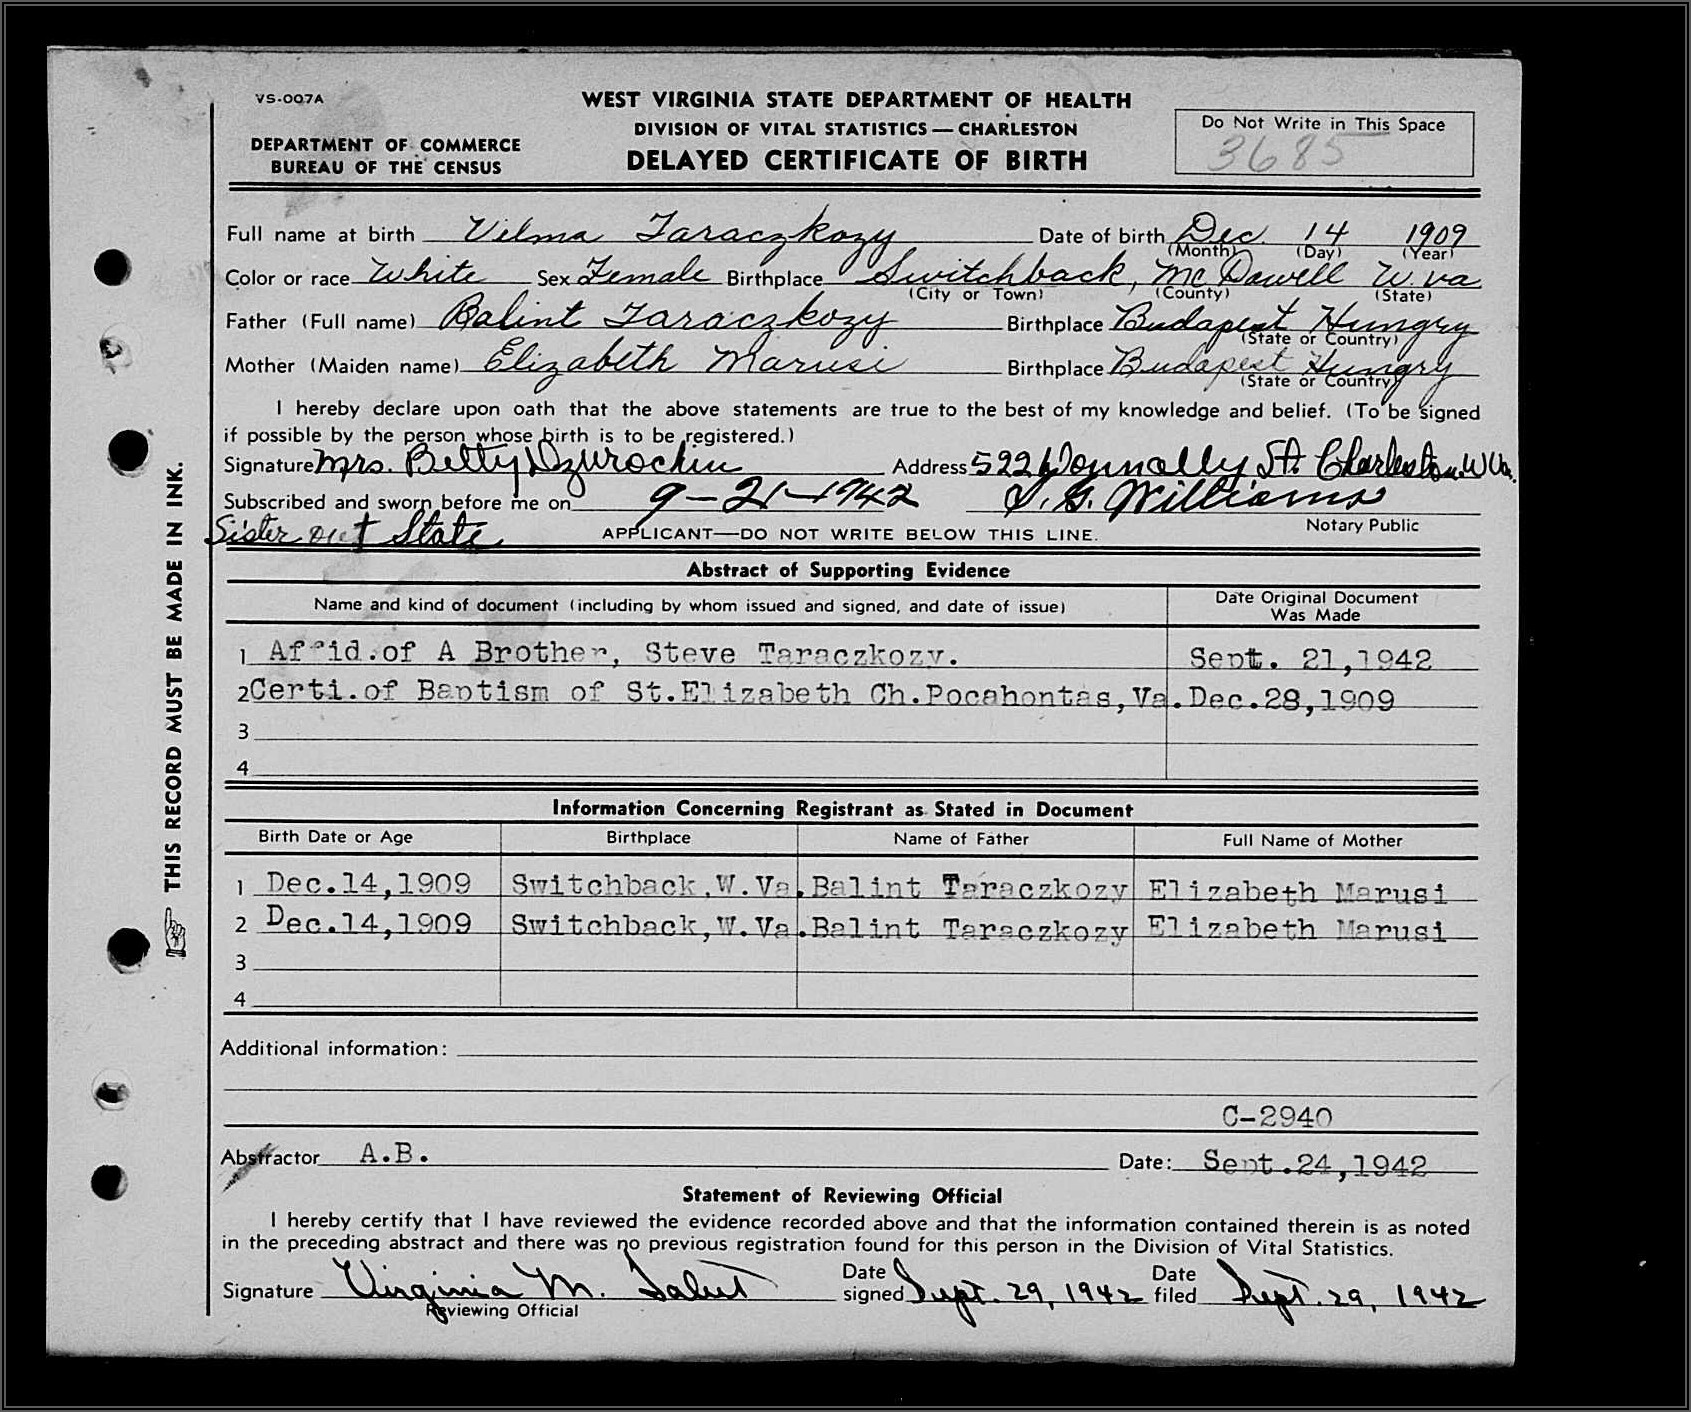 VS-007A
WEST VIRGINIA STATE DEPARTMENT OF HEALTH
DEPARTMENT OF COMMERCE
BUREAU OF THE CENSUS
DIVISION OF VITAL STATISTICS — CHARLESTON
DELAYED CERTIFICATE OF BIRTH
Do Not Write in This Space
3685
Full name at birth Vilma Taraczkozy Date of birth Dec. 14 1909
(Month) (Day) (Year)
Color or race White Sex Female Birthplace Switchback, McDowell W.va
(City or Town) (County) (State)
Father (Full name) Balint Taraczkozy Birthplace Budapest Hungry
(State or Country)
Mother (Maiden name) Elizabeth Marusi Birthplace Budapest Hungry
(State or Country)
I hereby declare upon oath that the above statements are true to the best of my knowledge and belief. (To be signed
if possible by the person whose birth is to be registered.)
Signature Mrs. Betty Dzurochin Address 522 Donnally St. Charleston W Va.
Subscribed and sworn before me on 9-21-1942 Williams
Notary Public
Sister out State APPLICANT—DO NOT WRITE BELOW THIS LINE.
Abstract of Supporting Evidence
Name and kind of document (including by whom issued and signed, and date of issue) Date Original Document Was Made
1 Affid.of A Brother, Steve Taraczkozy. Sept. 21,1942
2 Certi.of Baptism of St.Elizabeth Ch.Pocahontas,Va. Dec.28,1909
3
4
Information Concerning Registrant as Stated in Document
Birth Date or Age Birthplace Name of Father Full Name of Mother
1 Dec.14,1909 Switchback,W.Va. Balint Taraczkozy Elizabeth Marusi
2 Dec.14,1909 Switchback,W.Va. Balint Taraczkozy Elizabeth Marusi
3
4
Additional information:
C-2940
Abstractor A.B. Date: Sept.24,1942
Statement of Reviewing Official
I hereby certify that I have reviewed the evidence recorded above and that the information contained therein is as noted
in the preceding abstract and there was no previous registration found for this person in the Division of Vital Statistics.
Signature Virginia M. Date signed Sept. 29, 1942 Date filed Sept. 29, 1942
Reviewing Official
THIS RECORD MUST BE MADE IN INK.